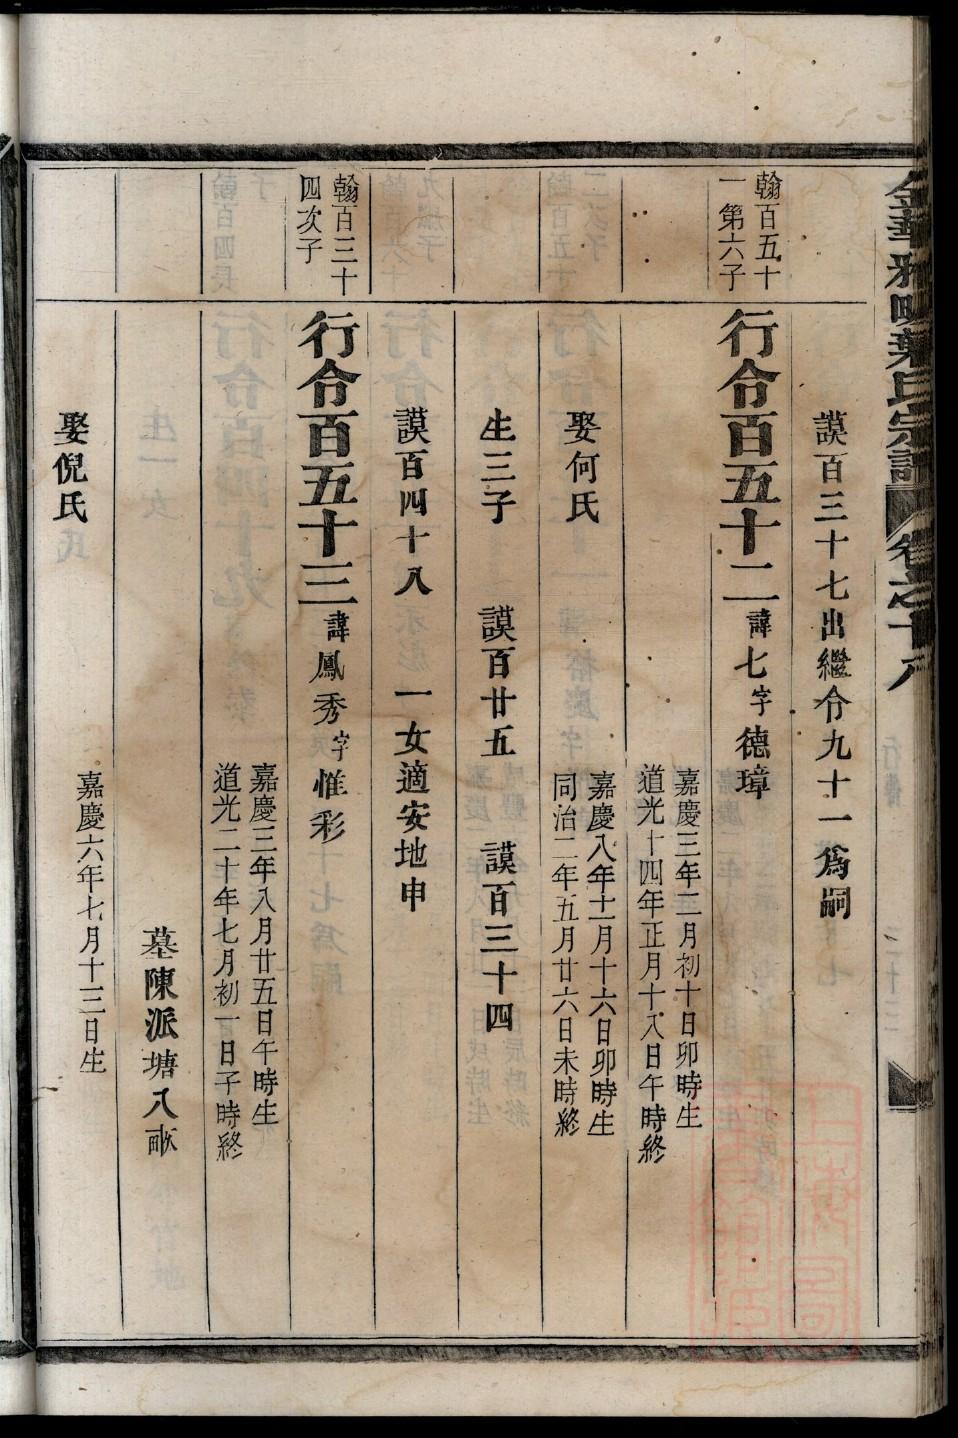 金華雅畈葉氏宗譜 卷之十八
謨百三十七出繼令九十一爲嗣
翰百五十
一第六子
行令百五十二諱七字德璋
嘉慶三年二月初十日卯時生
道光十四年正月十八日午時終
娶何氏
嘉慶八年十一月十六日卯時生
同治二年五月廿六日未時終
生三子 謨百廿五 謨百三十四
謨百四十八 一女適安地申
翰百三十
四次子
行令百五十三諱鳳秀字惟彩
嘉慶三年八月廿五日午時生
道光二十年七月初一日子時終
墓陳派塘八畝
娶倪氏
嘉慶六年七月十三日生